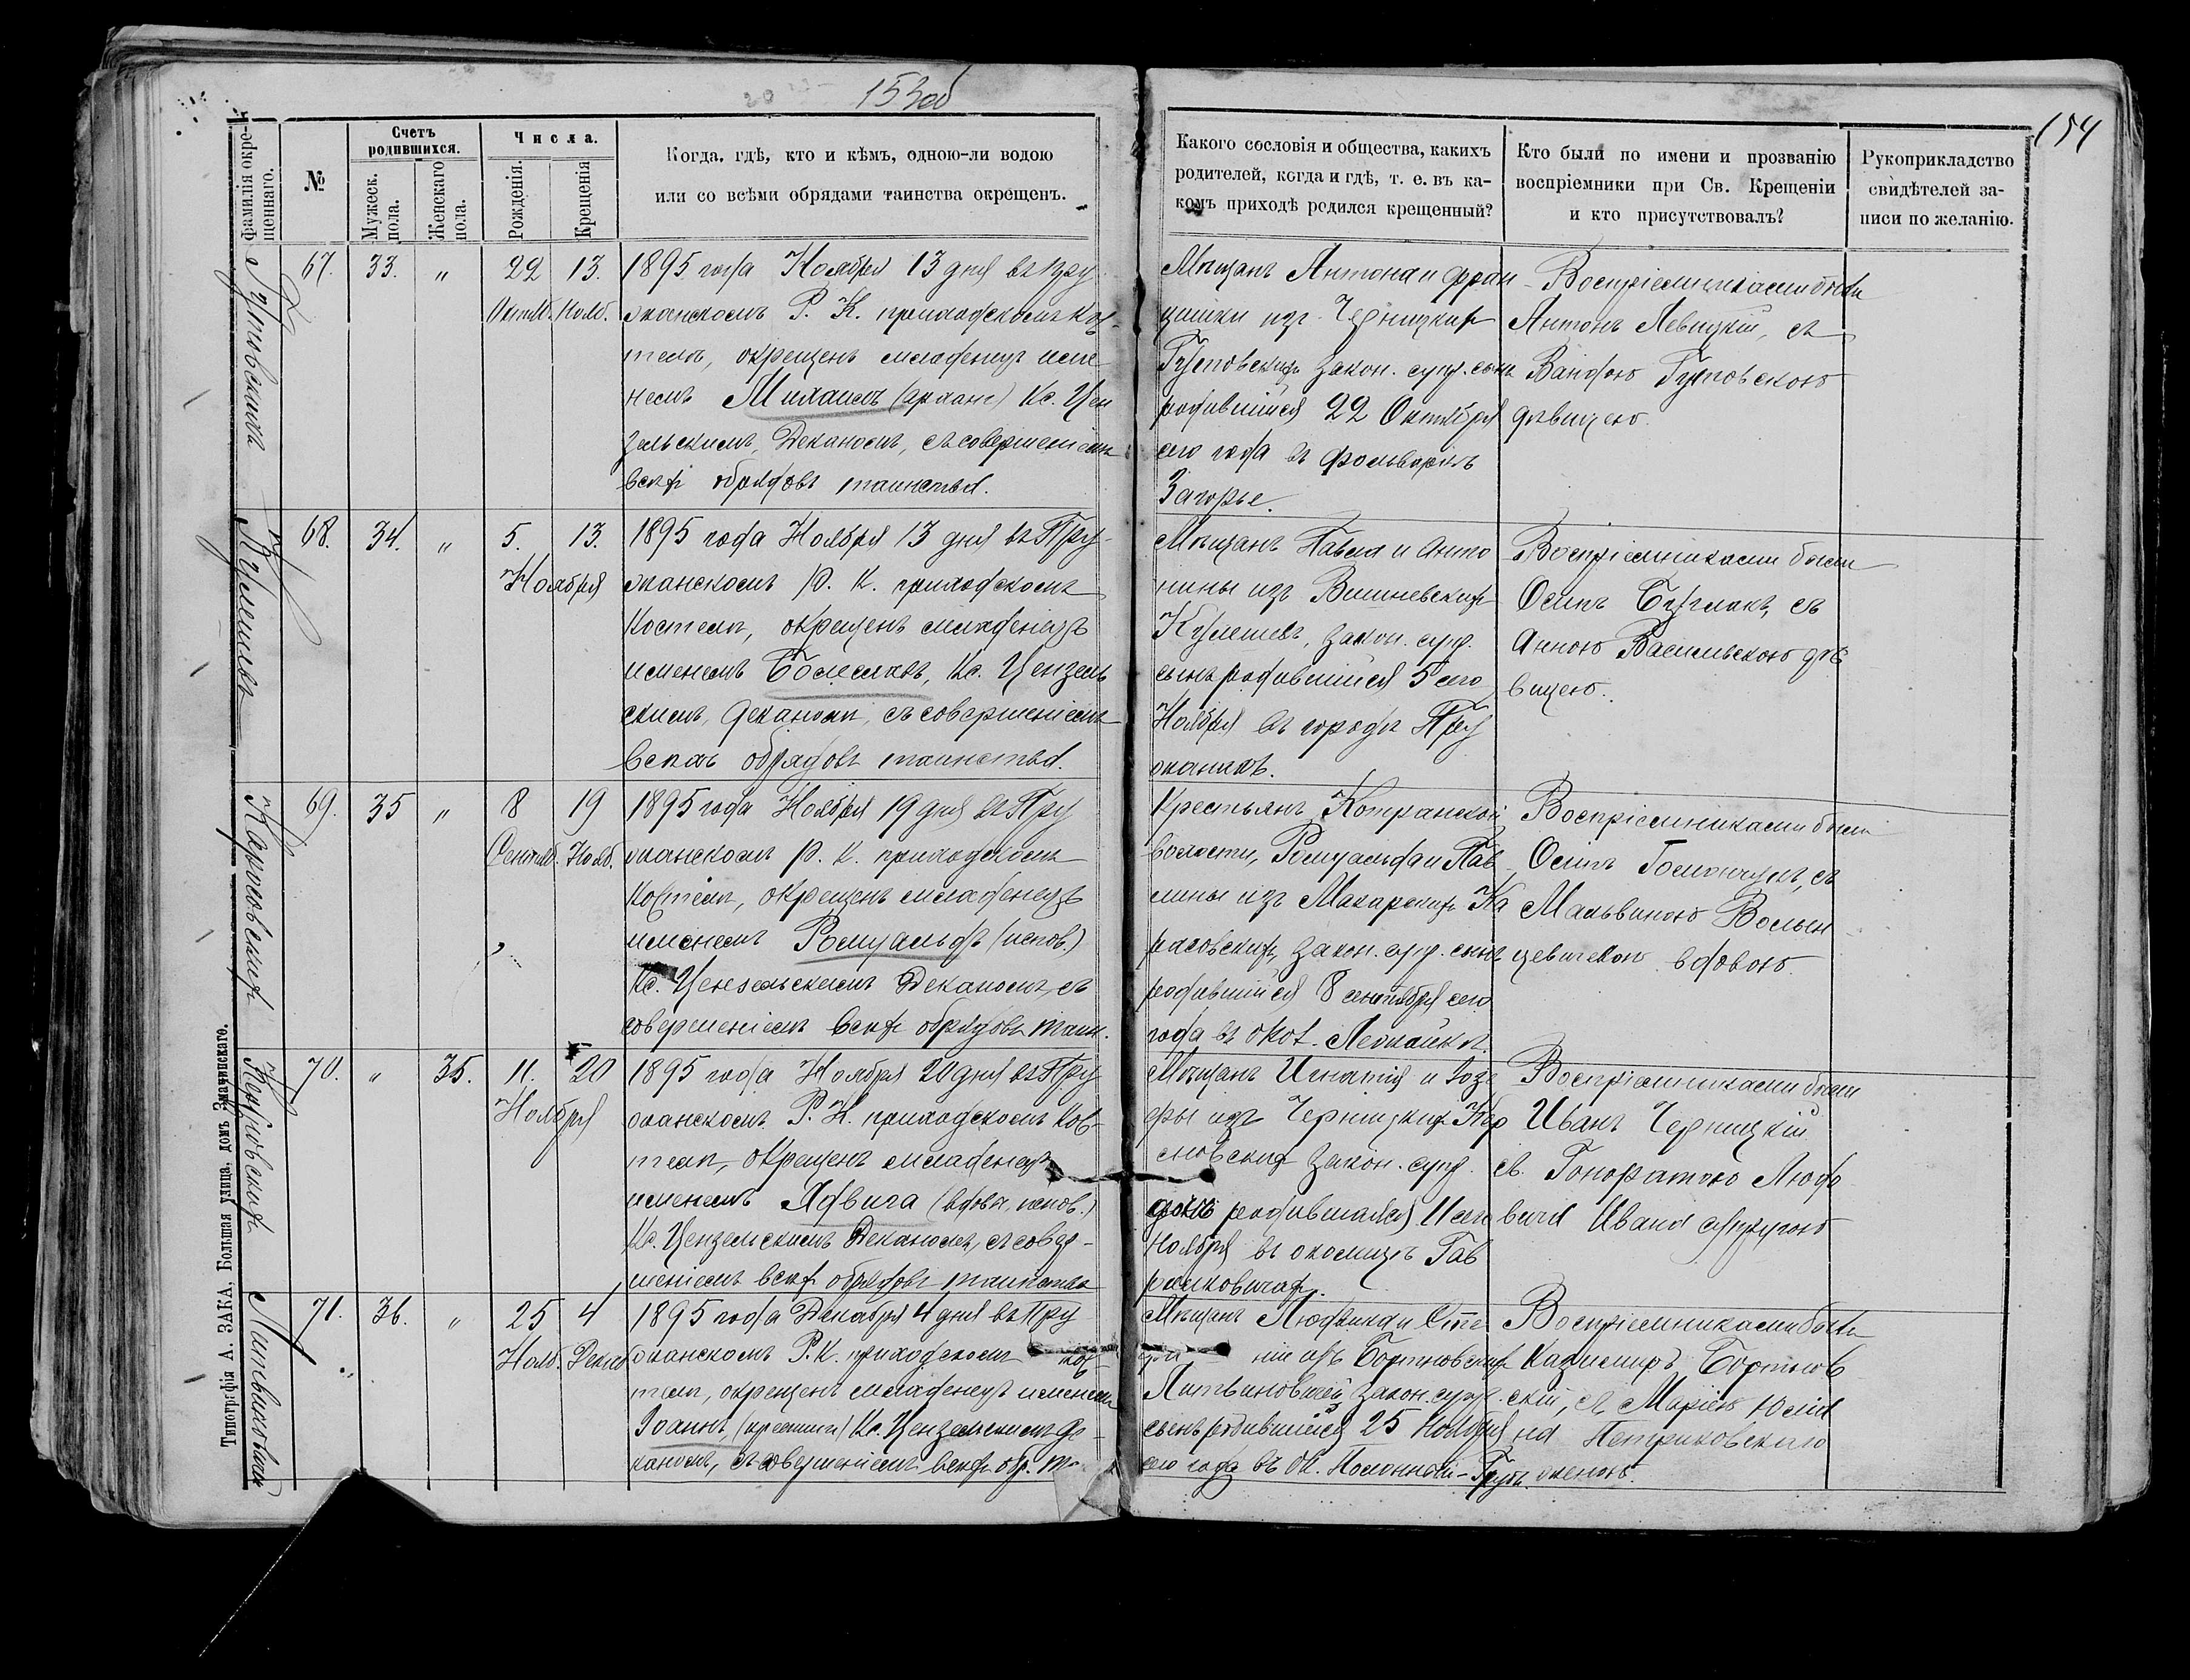 153об
154
фамилія окре-
щеннаго.
№
Счетъ
родившихся.
Мужеск.
пола.
Женскаго
пола.
Числа.
Рожденія.
Крещенія
Когда, гдѣ, кто и кѣмъ, одною-ли водою
или со всѣми обрядами таинства окрещенъ.
Какого сословія и общества, какихъ
родителей, когда и гдѣ, т. е. въ ка-
комъ приходѣ родился крещенный?
Кто были по имени и прозванію
воспріемники при Св. Крещеніи
и кто присутствовалъ?
Рукоприкладство
свидѣтелей за-
писи по желанію.
67.
33.
"
22
Октяб.
13.
Нояб.
1895 года Ноября 13 дня въ Пру
жанскомъ Р. К. приходскомъ кос-
телѣ, окрещенъ младенецъ име
немъ Михаилъ (арханг) Кс. Цен
зельскимъ, Деканомъ, съ совершеніемъ
всѣхъ обрядовъ таинства.
Мѣщанъ Антона и Фран
цишки изъ Черницкихъ
закон. супр. сынъ
родившійся 22 Октября
сего года въ фольваркѣ
Загорье.
Воспріемниками были
Антонъ Левицкій, съ
дѣвицею.
Кулешевъ
68.
34.
"
5.
13.
Ноября
1895 года Ноября 13 дня въ Пру-
жанскомъ Р. К. приходскомъ
Костелѣ, окрещенъ младенецъ
именемъ Болеславъ, Кс. Цензель
скимъ, Деканомъ, съ совершеніемъ
всѣхъ обрядовъ таинства.
Мѣщанъ Павла и Анто
нины изъ Вишневскихъ
Кулешевъ, закон. супр.
сынъ родившійся 5 сего
Ноября въ городѣ Пру
жанахъ.
Воспріемниками были
Осипъ съ
Анною Васильскою дѣ
вицею.
Карасовскихъ
69.
35
"
8
Сентяб.
19
Нояб.
1895 года Ноября 19 дня въ Пру
жанскомъ Р. К. приходскомъ
Костелѣ, окрещенъ младенецъ
именемъ Ромуальдъ (испов.)
Кс. Цензельскимъ Деканомъ, съ
совершеніемъ всѣхъ обрядовъ таин.
Крестьянъ Котранской
волости, Ромуальда и Пав
лины изъ Макарскихъ Ка
расовскихъ, закон. супр. сынъ
родившійся 8 сентября сего
года въ окол.
Воспріемниками были
Осипъ съ
Мальвиною Волын
цевичевою вдовою.
70.
"
35.
11.
20
Ноября
1895 года Ноября 20 дня въ Пру
жанскомъ Р. К. приходскомъ Кос-
телѣ, окрещенъ младенецъ
именемъ Ядвига (вдова, испов.)
Кс. Цензельскимъ Деканомъ, съ совер-
шеніемъ всѣхъ обрядовъ таинства
Мѣщанъ Игнатія и Іозе
фы изъ Черницкихъ
сновскихъ закон. супр.
дочь родившаяся 11 сего
Ноября въ околицѣ Гав
рилковичахъ.
Воспріемниками были
Иванъ Черницкій
съ Гоноратою
Ивана супругою
71.
36.
"
25
Нояб.
4
Декаб
1895 года Декабря 4 дня въ Пру
жанскомъ Р. К. приходскомъ кос-
телѣ, окрещенъ младенецъ именемъ
Іоаннъ, (крестит) Кс. Цензельскимъ Де-
каномъ, съ совершеніемъ всѣхъ обр. т.
Мѣщанъ Людвика и Сте
ніи изъ Бортновскихъ
закон. супр.
сынъ родившійся 25 Ноября
сего года въ ок.
Воспріемниками были
Казимиръ Бортнов
скій, съ Маріею Юліа
на Петриковскаго
женою.
Типографія А. ЗАКА, Большая улица, домъ Значинскаго.